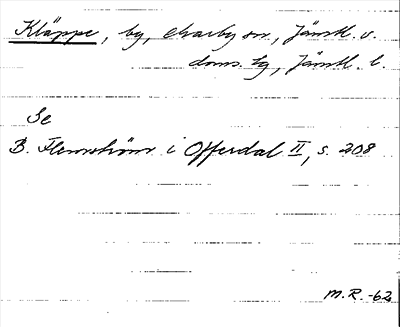 Kläppe, by, Marby sn, Jämtl. v.
doms. hg, Jämtl. l.
Se
B. Flemström i Offerdal II, s. 208
M.R. -62